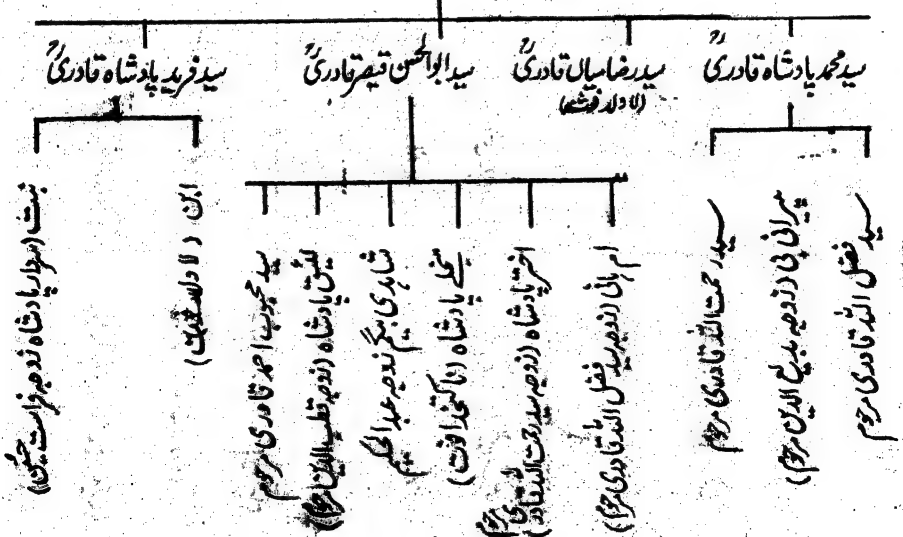 سید محمد پادشاہ قادریؒ
سید رضا میاں قادریؒ
(لا ولد فوت)
سید ابوالحسن قیصر قادریؒ
سید فرید پادشاہ قادریؒ
سید فضل اللہ قادری مرحوم
میرانی بی (زوجہ بدیع الدین مرحوم)
سید رحمت اللہ قادری مرحوم
ام ہانی (زوجہ سید فضل اللہ قادری مرحوم)
اختر پادشاہ (زوجہ سید رحمت اللہ قادری مرحوم)
منجلے پادشاہ (ناکتخدا فوت)
شاہدی بیگم زوجہ عبدالحکیم
لئیق پادشاہ (زوجہ قطب الدین مرحوم)
سید محبوب احمد قادری مرحوم
ابن (لا ولد
بنت (سردار پادشاہ زوجہ فراست حسین)